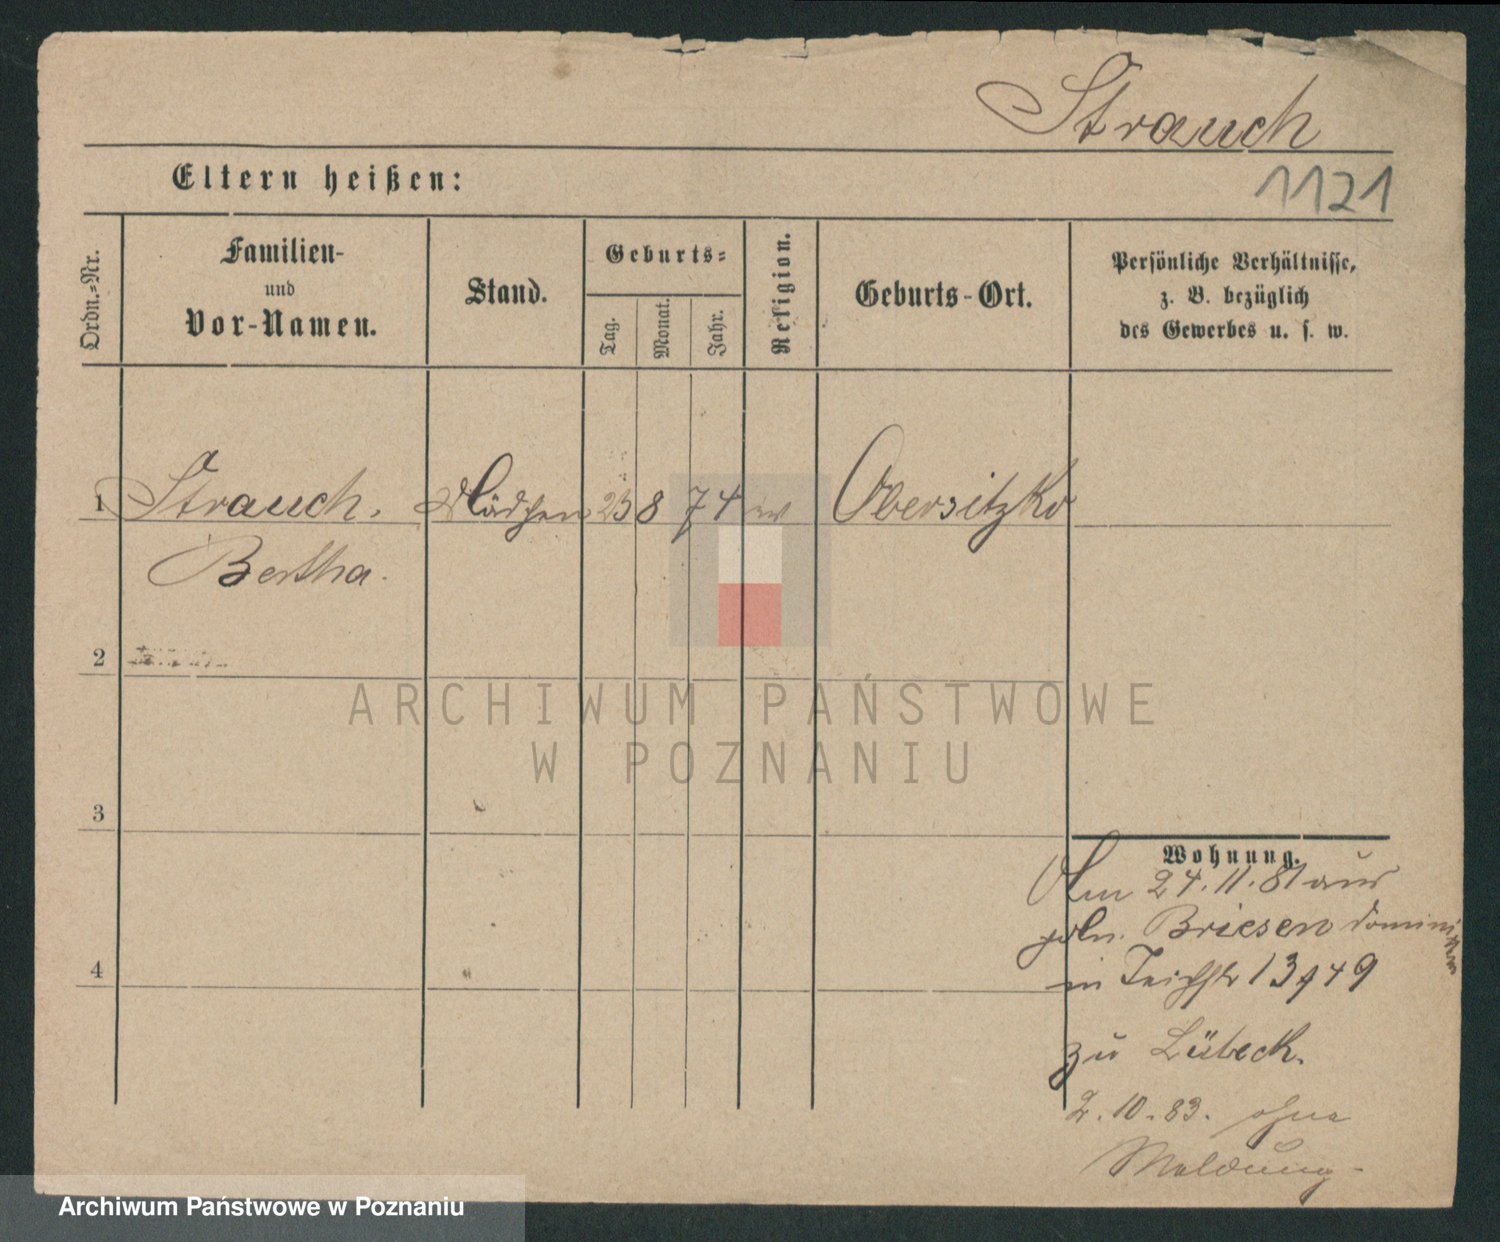 Strauch
Eltern heißen:
1121
Ordn.=Nr.
Familien-
und
Vor-Namen.
Stand.
Geburts=
Tag.
Monat.
Jahr.
Religion.
Geburts-Ort.
Persönliche Verhältnisse,
z. B. bezüglich
des Gewerbes u. s. w.
1 Strauch. Mädchen 23 8 74 Obersitzko
Bertha.
2
3
4
Wohnung.
Am 24.11.81 aus
poln. Briesen
in Teichstr 13
zu Lübeck.
2.10.83. ohne
Meldung-
ARCHIWUM PAŃSTWOWE
W POZNANIU
Archiwum Państwowe w Poznaniu